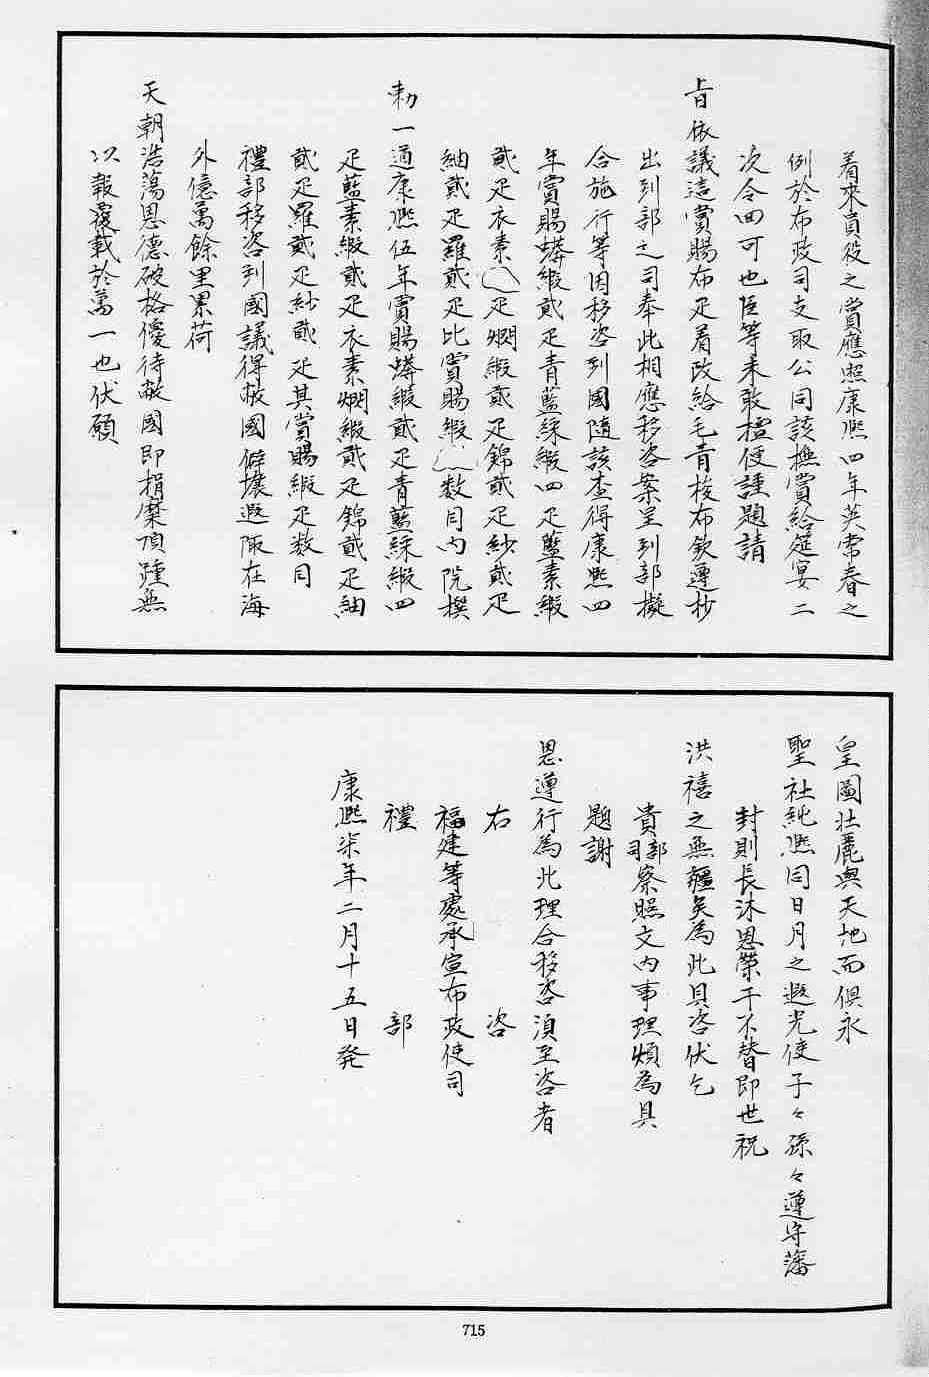 着來員役之賞應照康熙四年英常春之
例於布政司支取公同該撫賞給筵宴二
次令回可也臣等未敢擅便謹題請
旨依議這賞賜布疋着改給毛青梭布欽遵抄
出到部之司奉此相應移咨案呈到部擬
合施行等因移咨到國隨該查得康熙四
年賞賜蟒緞貳疋青藍綵緞四疋藍素緞
貳疋衣素疋燗緞貳疋錦貳疋紗貳疋
紬貳疋羅貳疋比賞賜緞數目內院撰
勅一通康熙伍年賞賜蟒緞貳疋青藍綵緞四
疋藍素緞貳疋衣素燗緞貳疋錦貳疋紬
貳疋羅貳疋紗貳疋其賞賜緞疋数同
禮部移咨到國議得敝國僻壤遐陬在海
外億萬餘里累荷
天朝浩蕩恩德破格優待敝國即捐糜頂踵無
以報覆載於萬一也伏願
皇圖壯麗與天地而俱永
聖社純熙同日月之遐光使子々孫々遵守藩
封則長沐恩榮于不替即世祝
洪禧之無疆矣為此具咨伏乞
貴部司察照文內事理煩為具
題謝
恩遵行為此理合移咨湏至咨者
右 咨
福建等處承宣布政使司
禮 部
康熙柒年二月十五日発
715